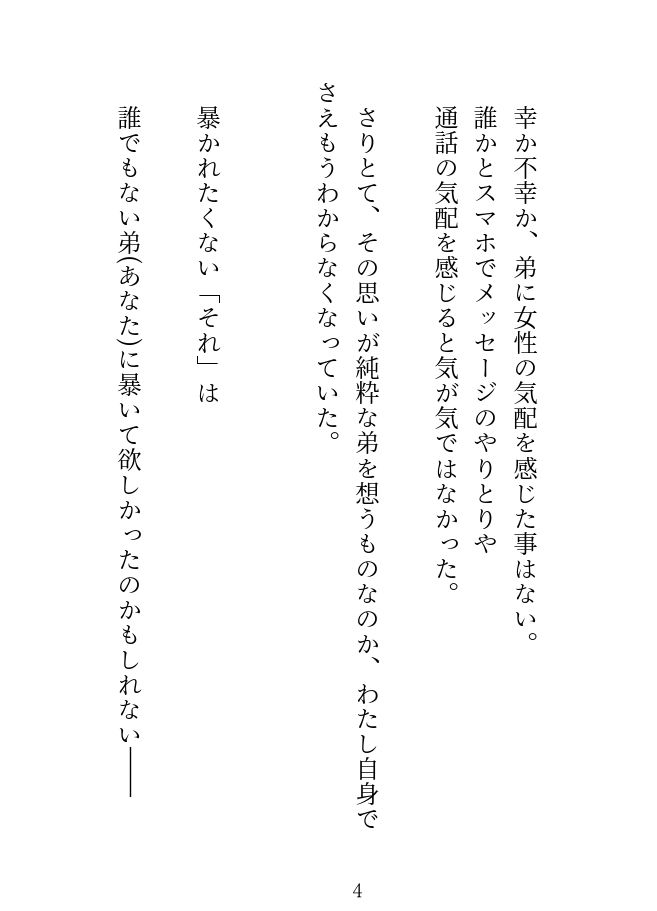 幸か不幸か、弟に女性の気配を感じた事はない。
誰かとスマホでメッセージのやりとりや
通話の気配を感じると気が気ではなかった。
さりとて、その思いが純粋な弟を想うものなのか、わたし自身で
さえもうわからなくなっていた。
暴かれたくない「それ」は
誰でもない弟(あなた)に暴いて欲しかったのかもしれない――
4